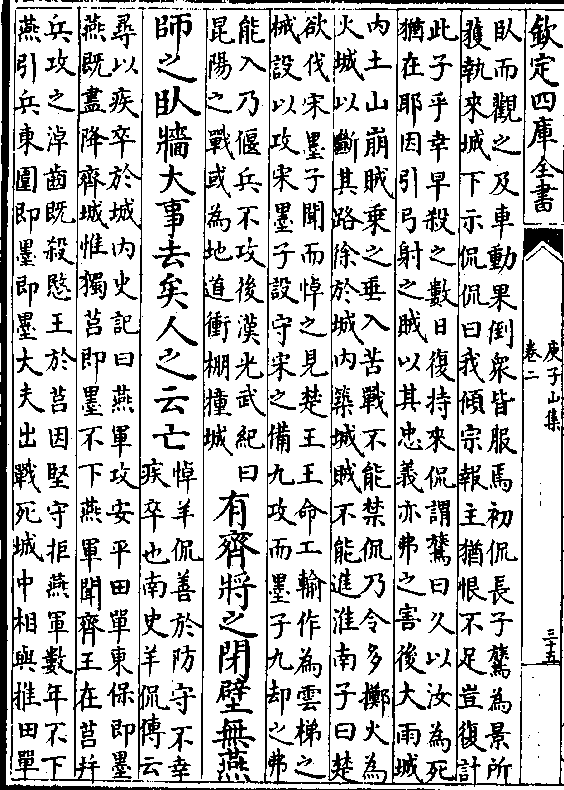 欽定四庫全書
庾子山集
卷二
三十五
臥而觀之及車動果倒衆皆服焉初侃長子鷟為景所
獲執來城下示侃侃曰我傾宗報主猶恨不足豈復計
此子乎幸早殺之數日復持來侃謂鷟曰久以汝為死
猶在耶因引弓射之賊以其忠義亦弗之害後大雨城
内土山崩賊乘之垂入苦戰不能禁侃乃令多擲火為
火城以斷其路徐於城内築城賊不能進淮南子曰楚
欲伐宋墨子聞而悼之見楚王王命工輸作為雲梯之
械設以攻宋墨子設守宋之備九攻而墨子九却之弗
能入乃偃兵不攻後漢光武紀曰
昆陽之戰或為地道衝棚撞城
有齊將之閉壁無燕
師之臥牆大事去矣人之云亡
悼羊侃善於防守不幸
疾卒也南史羊侃傳云
尋以疾卒於城内史記曰燕軍攻安平田單東保即墨
燕既盡降齊城惟獨莒即墨不下燕軍聞齊王在莒并
兵攻之淖齒既殺愍王於莒因堅守拒燕軍數年不下
燕引兵東圍即墨即墨大夫出戰死城中相與推田單